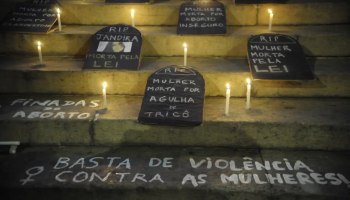 RIP
JANDIRA
MORTA PELA
LEI
MULHER
MORTA POR
ABORTO
INSEGURO
RIP
MULHER
MORTA PELA
LEI
RIP
MULHER
MORTA POR
AGULHA
DE
TRICÔ
FINADAS
ABORTO!
♀ BASTA DE VIOLÊNCIA
CONTRA AS MULHERES!